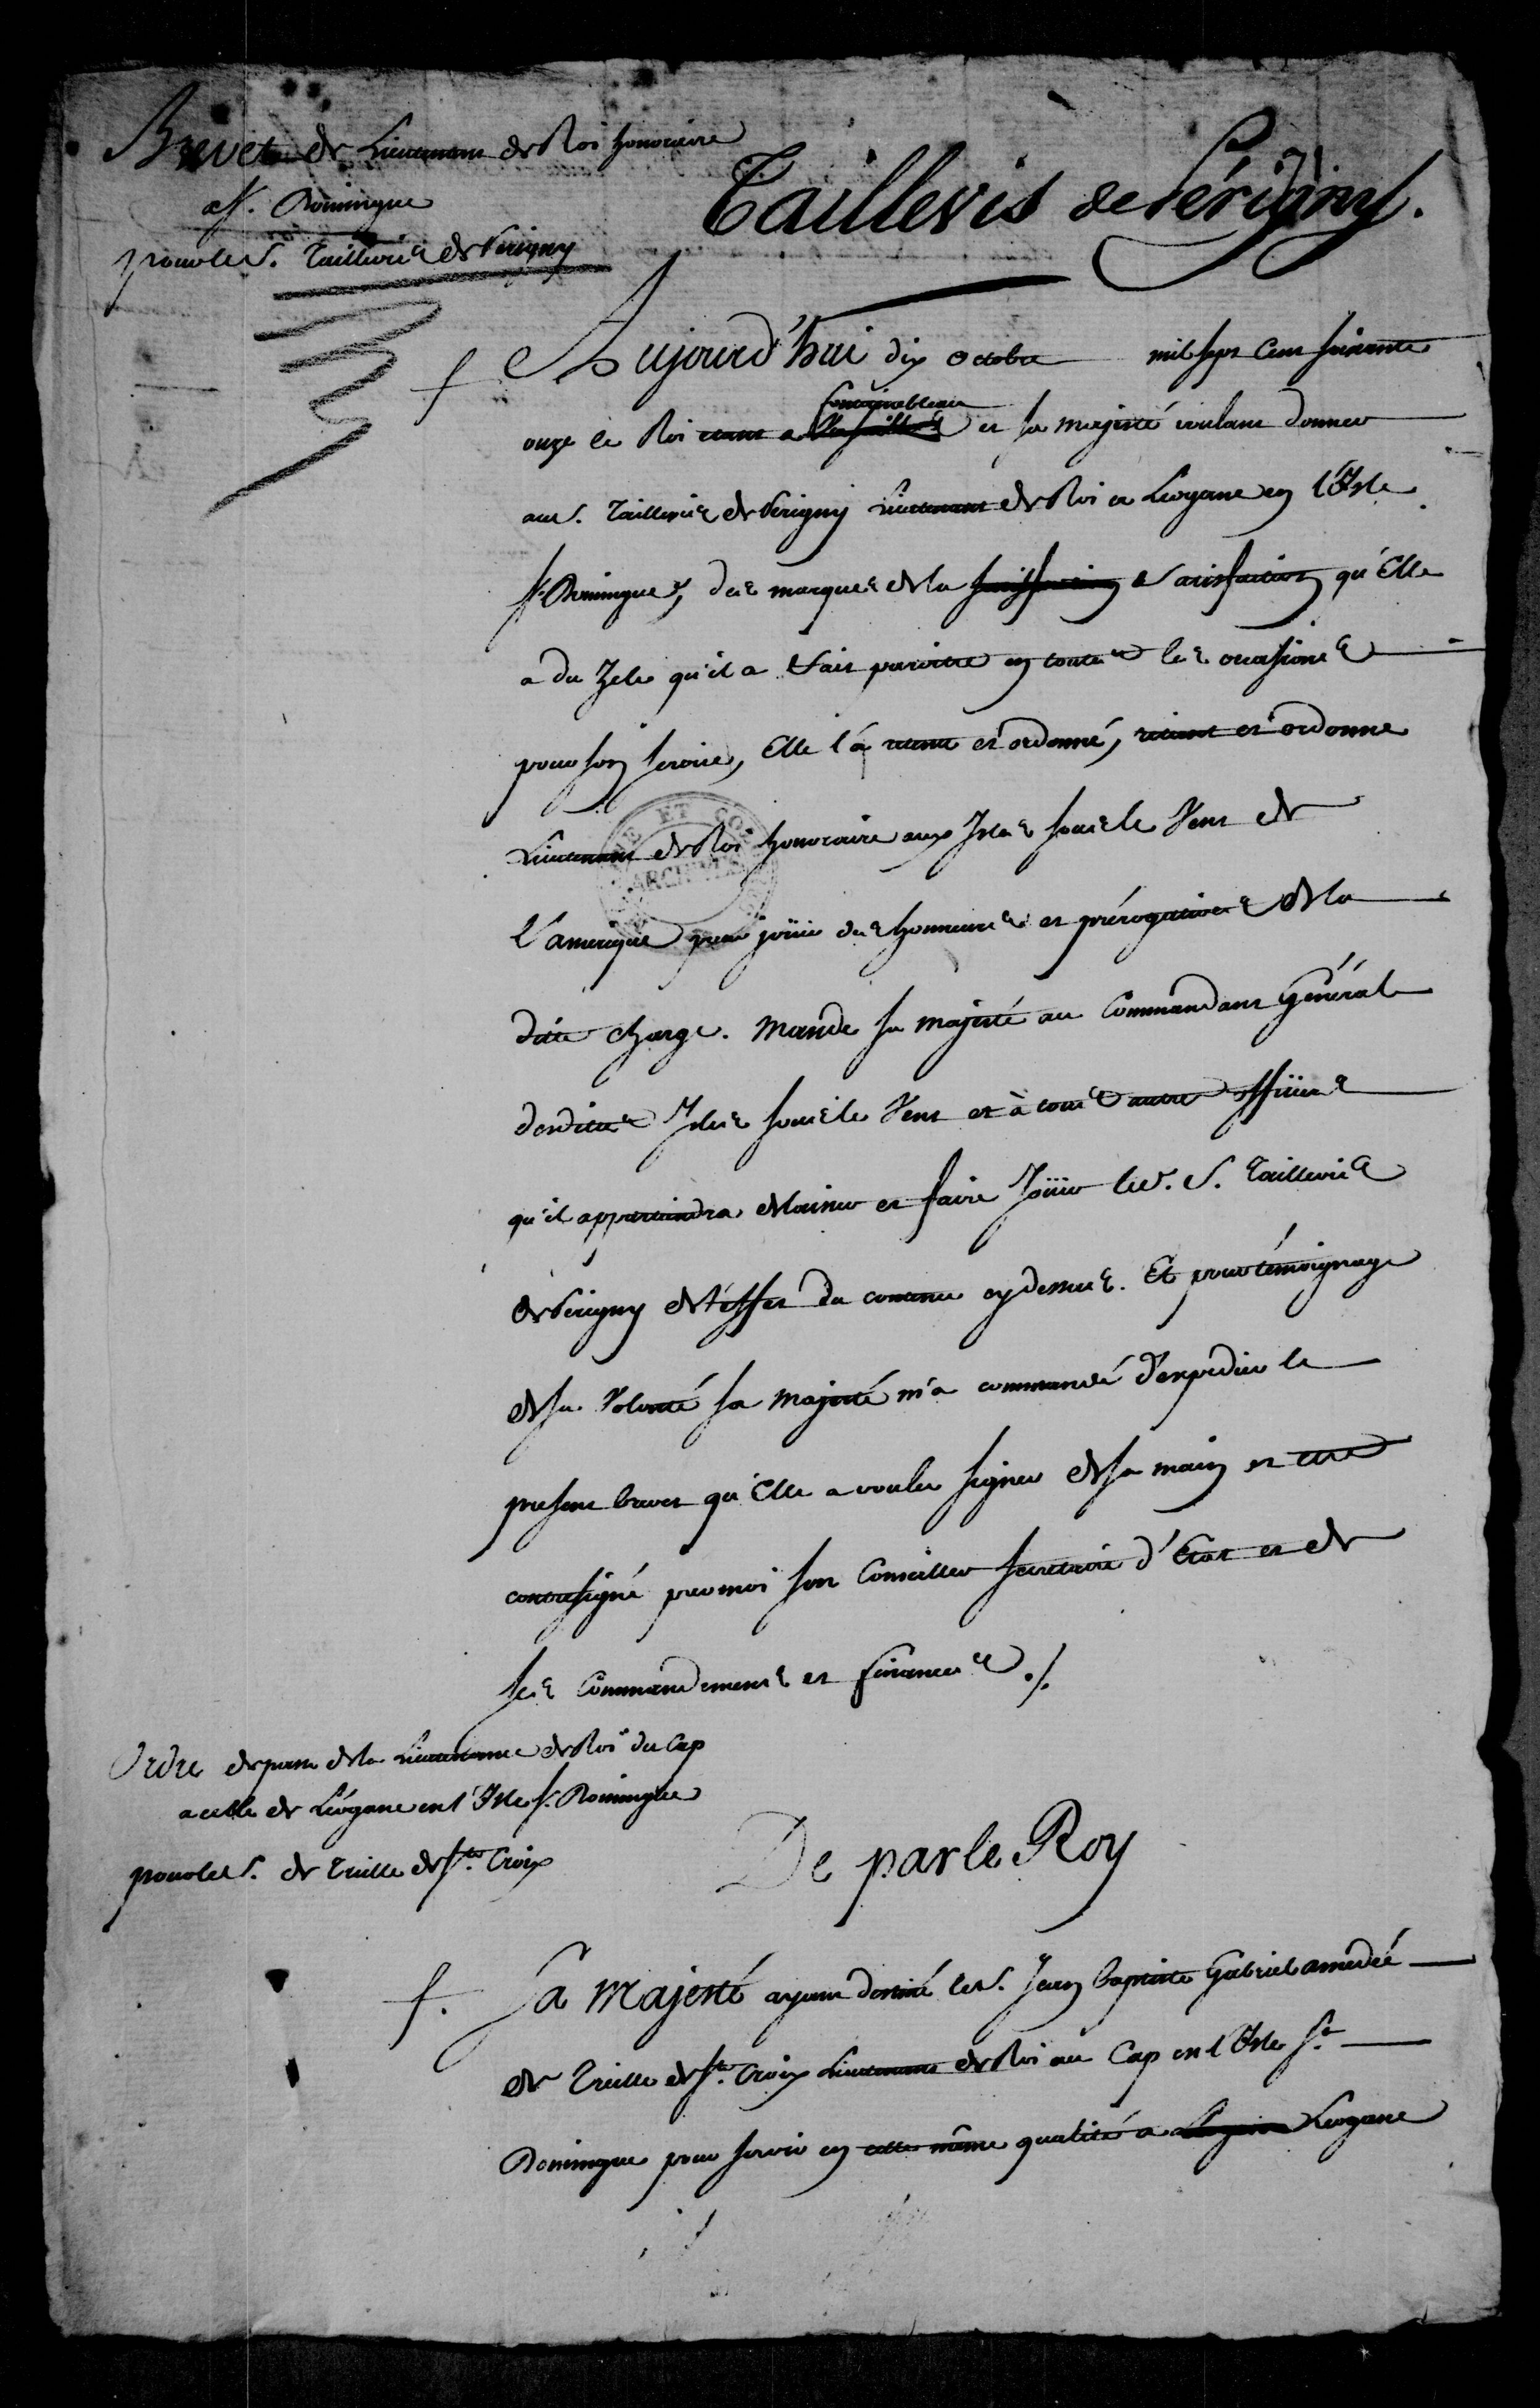 Brevet de Lieutenant de Roi honoraire
a St. Domingue
pour le S. Taillevis de Perigny
Taillevis de Périgny.
Aujourd'hui dix octobre mil sept cent soixante
onze le Roi etant a Versailles Fontainebleau et sa majesté voulant donner
au S. Taillevis de Perigny Lieutenant de Roi a Leogane en l'Isle
St. Domingue, des marques de la satisfaction Satisfaction qu'Elle
a du Zele qu'il a fait paroitre en toutes les occasions
pour son service, Elle l'a retenu et ordonné, retient et ordonne
Lieutenant de Roi honoraire aux Isles sous le Vent de
l'amerique pour joüir des honneurs et prérogatives de la
dite charge. Mande sa majesté au Commandant Général
desdites Isles sous le Vent et à tous autres officiers
qu'il appartiendra de laisser et faire Joüir led. S. Taillevis
de Perigny de l'effet du contenu cy dessus. Et pour témoignage
de sa Volonté sa Majesté m'a commandé d'expedier le
present brevet qu'Elle a voulu signer de sa main et etre
contresigné par moi son Conseiller Secretaire d'Etat et de
ses Commandemens et finances ./.
Ordre de passer de la Lieutenance de Roi du Cap
a celle de Léogane en l'Isle St. Domingue
pour le S. de Treille de Ste. Croix
De par le Roy
Sa Majesté ayant destiné le S. Jean baptiste Gabriel amedée
de Treille de Ste. Croix Lieutenant de Roi au Cap en l'Isle St.
Domingue pour servir en cette même qualité a Leogane
ARCHIVES